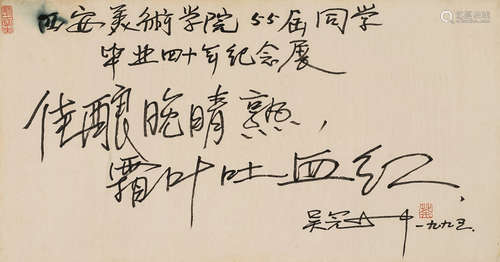 西安美術学院55届同学
毕业四十年纪念展
佳酿晚晴熟，
霜叶吐血红、
吴冠中
一九九五、